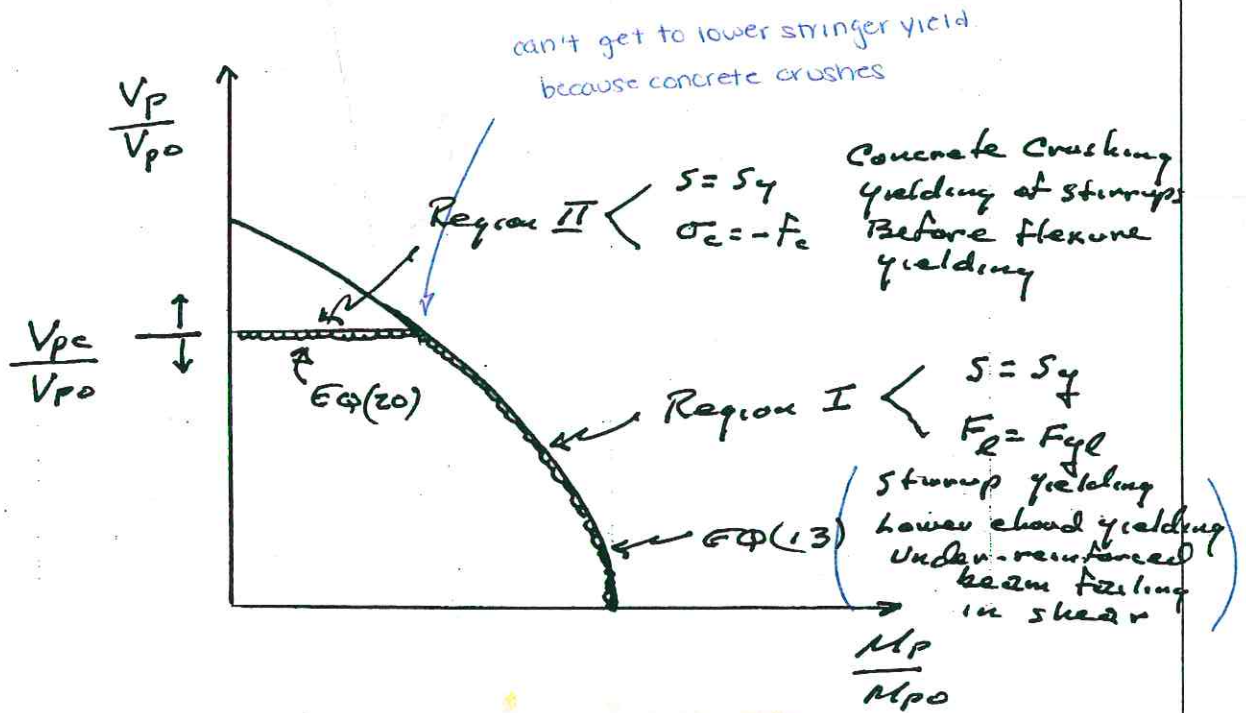 can't get to lower stringer yield
because concrete crushes
Vp
Vpo
Region II
S = Sy
σc = -fc
Concrete Crushing
yielding of stirrups
Before flexure
yielding
Vpc
Vpo
EQ(20)
Region I
S = Sy
Fl = Fyl
EQ(13)
Stirrup yielding
Lower chord yielding
under-reinforced
beam failing
in shear
Mp
Mpo